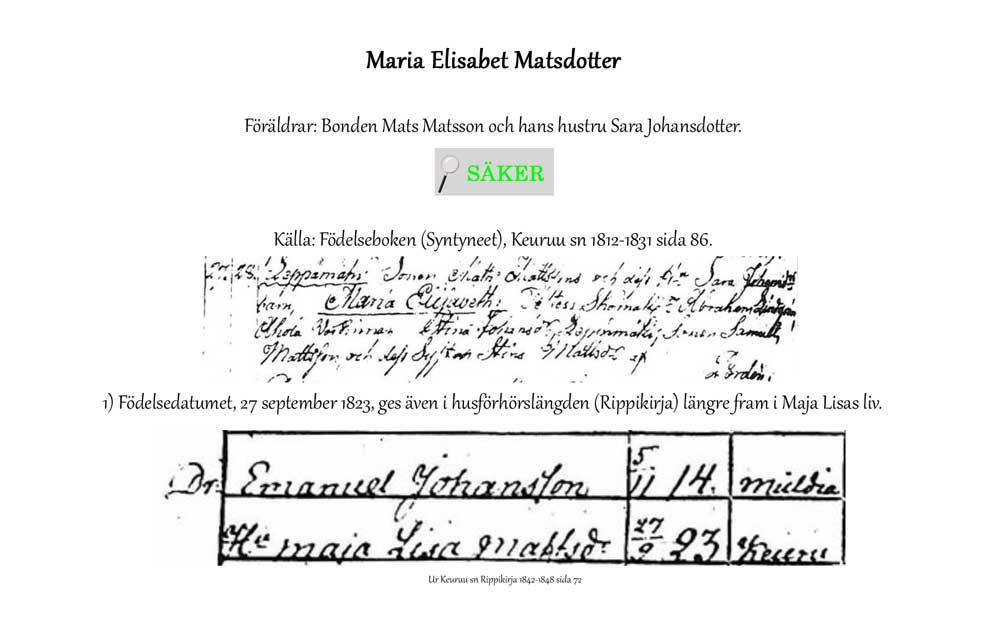 Maria Elisabet Matsdotter
Föräldrar: Bonden Mats Matsson och hans hustru Sara Johansdotter.
SÄKER
Källa: Födelseboken (Syntyneet), Keuruu sn 1812-1831 sida 86.
27. 28. Seppämäki Sonen Matts Mattsons och dess H:u Sara
barn, Maria Elisabeth: Abraham
Stina Johansd:r Seppämäki, Sonen
Mattsson, och dess Stina Mattsd:r
1) Födelsedatumet, 27 september 1823, ges även i husförhörslängden (Rippikirja) längre fram i Maja Lisas liv.
Dr. Emanuel Johansson 5/11 14. Muldia
Hu maja Lisa Mattsdr 27/9 23 Keuru
Ur Keuruu sn Rippikirja 1842-1848 sida 72